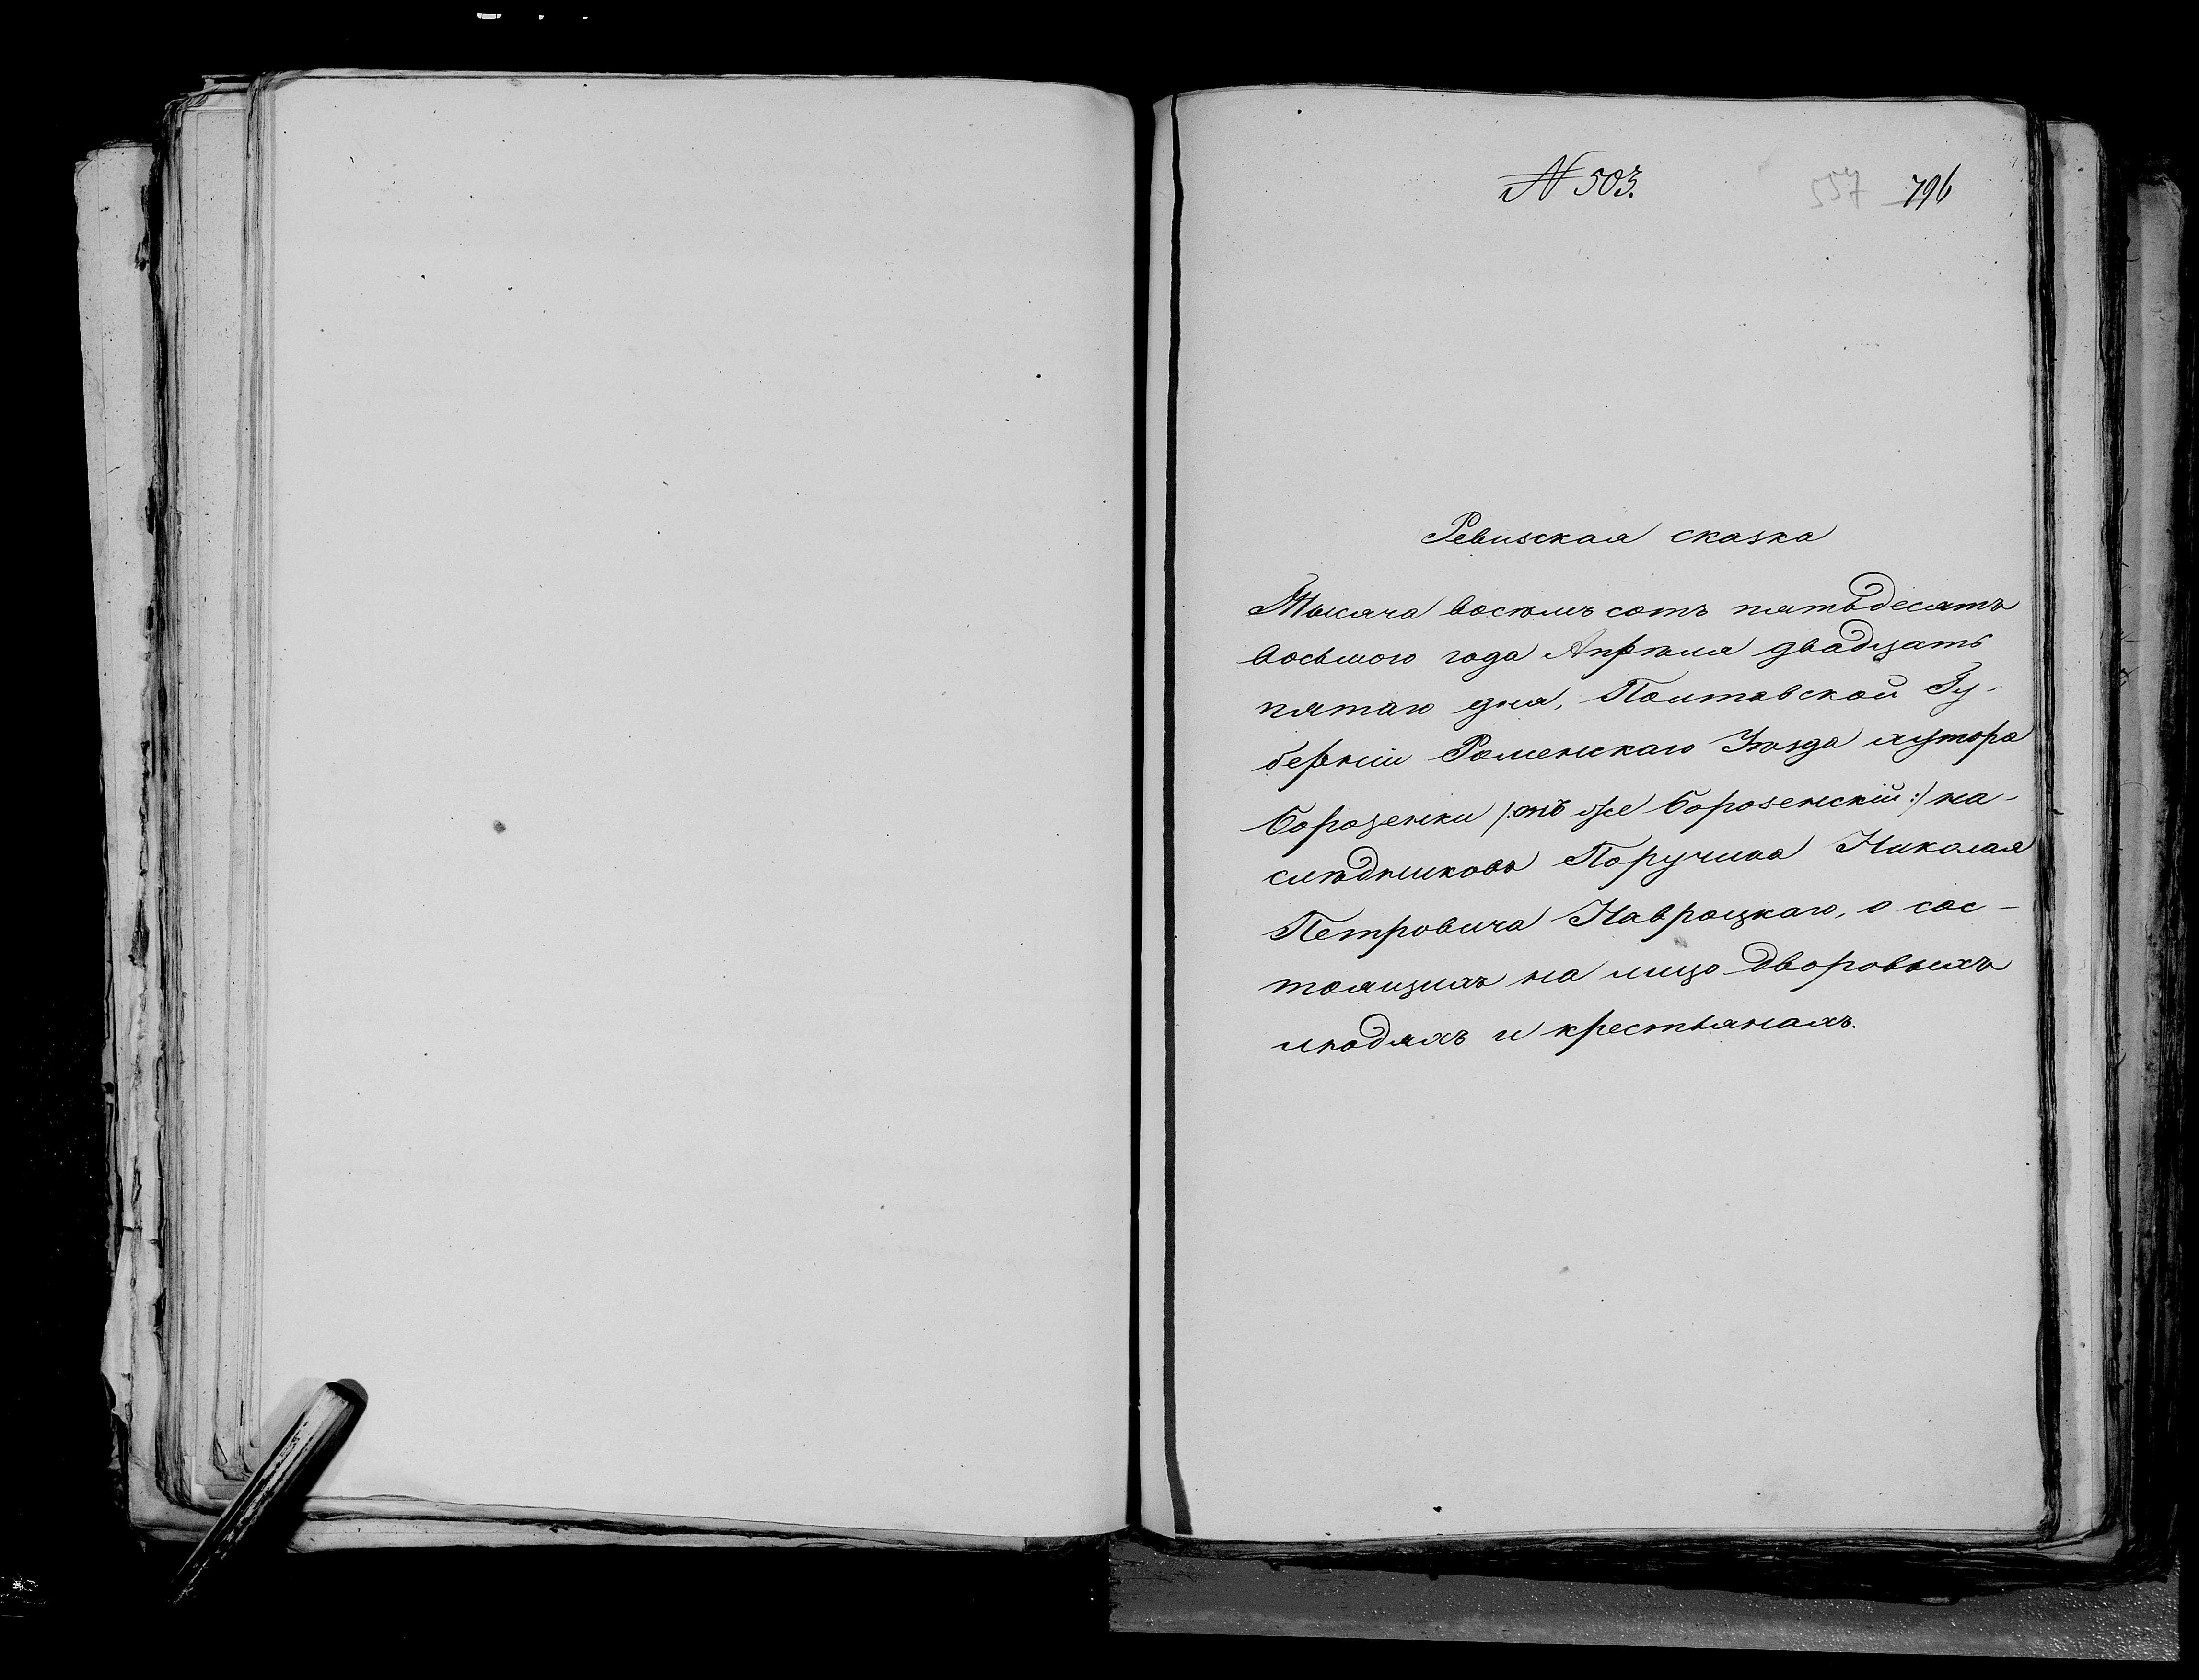 N 503. 557 796
Ревизская сказка
Тысяча восемь сотъ пятьдесятъ
восьмого года Апрѣля двадцать
пятаго дня, Полтавской Гу-
берніи Роменскаго Уѣзда хутора
Борозенки /:онъ же Борозенскій:/ на-
слѣдниковъ Поручика Николая
Петровича Навроцкаго, о сос-
тоящихъ на лицо дворовыхъ
людяхъ и крестьянахъ.